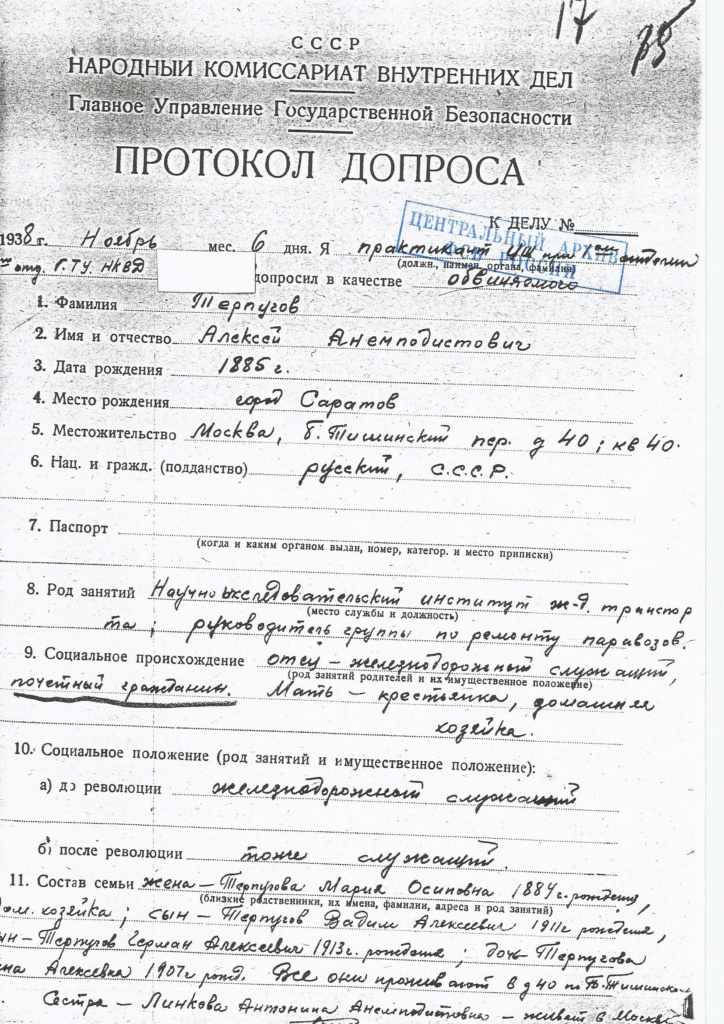 17
75
СССР
НАРОДНЫЙ КОМИССАРИАТ ВНУТРЕННИХ ДЕЛ
Главное Управление Государственной Безопасности
ПРОТОКОЛ ДОПРОСА
К ДЕЛУ №
ЦЕНТРАЛЬНЫЙ АРХИВ
ФСБ РОССИИ
1938 г. Ноябрь мес. 6 дня. Я практикант при отделении
(должн., наимен. органа, фамилия)
отд. Г.Т.У. НКВД допросил в качестве обвиняемого
1. Фамилия Терпугов
2. Имя и отчество Алексей Анемподистович
3. Дата рождения 1885 г.
4. Место рождения город Саратов
5. Местожительство Москва, Б. Тишинский пер. д 40; кв 40.
6. Нац. и гражд. (подданство) русский, С.С.С.Р.
7. Паспорт
(когда и каким органом выдан, номер, категор. и место приписки)
8. Род занятий Научноисследовательский институт ж-д. транспор
(место службы и должность)
та; руководитель группы по ремонту паравозов.
9. Социальное происхождение отец – железнодорожный служащий,
(род занятий родителей и их имущественное положение)
почетный гражданин. Мать – крестьянка, домашняя
хозяйка.
10. Социальное положение (род занятий и имущественное положение):
а) до революции железнодорожный служащий
б) после революции тоже служащий.
11. Состав семьи жена – Терпугова Мария Осиповна 1884 г. рождения,
(близкие родственники, их имена, фамилии, адреса и род занятий)
дом. хозяйка; сын – Терпугов Вадим Алексеевич 1911 г рождения,
ын – Терпугов Герман Алексеевич 1913 г. рождения; дочь Терпугова
на Алексевна 1907 г рожд. Все они проживают в д 40 по Б-Тишинском
Сестра – Линкова Антонина Анемподистовна – живет в Москве